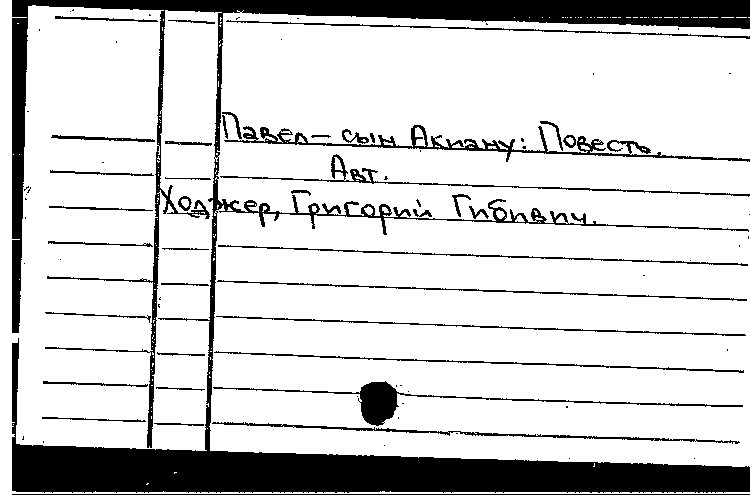 Павел – сын Акиану: Повесть.
Авт.
Ходжер, Григорий Гибивич.